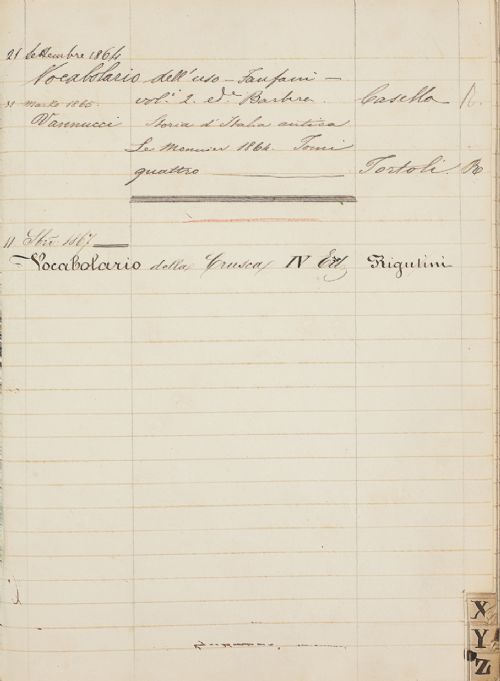 21 Settembre 1864
Vocabolario dell'uso - Fanfani -
vol.i 2. ed.e Barbera. Casella R.
31 Marzo 1865.
Vannucci Storia d'Italia antica
Le Monnier 1864. Tomi
quattro Tortoli. Ro
11 1867
Vocabolario della Crusca IV Ed Rigutini
X
Y
Z